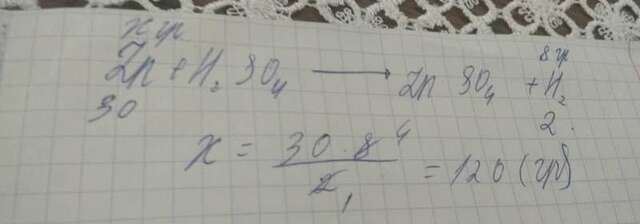 x гр 8 гр
Zn + H₂SO₄ ⟶ ZnSO₄ + H₂
30 2.
x = 30 · 8 4 / 2 1 = 120 (гр)